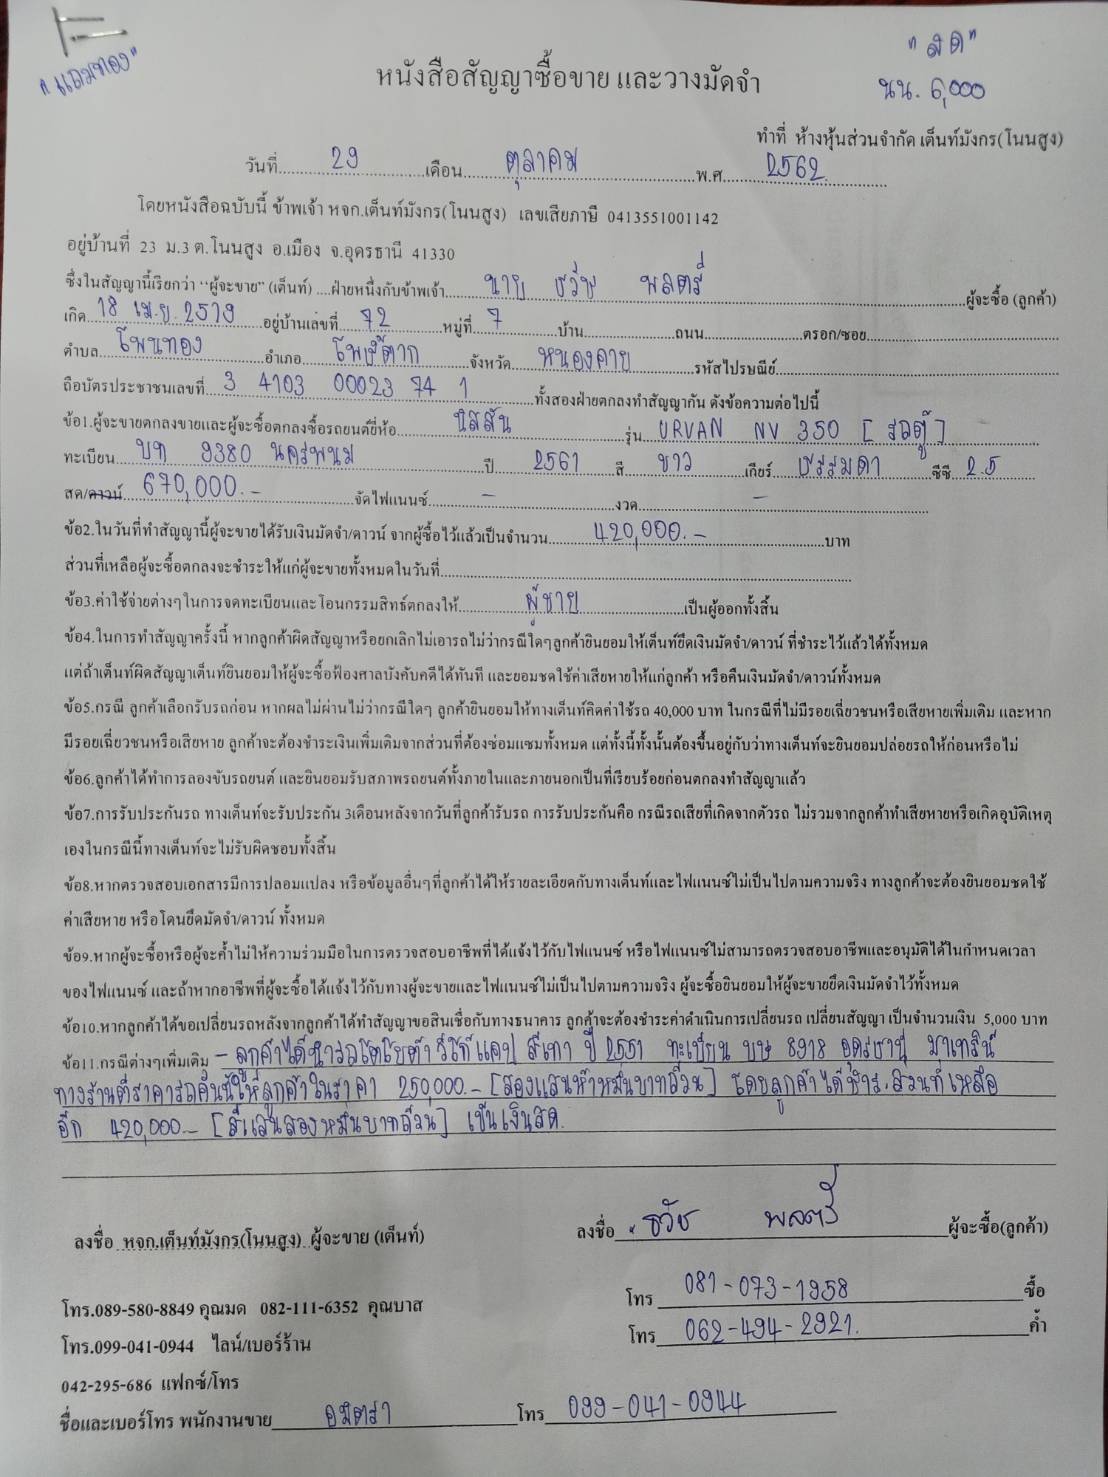 "แถมทอง"
"สด"
นน. 6,000
หนังสือสัญญาซื้อขาย และวางมัดจำ
ทำที่ ห้างหุ้นส่วนจำกัด เต็นท์มังกร(โนนสูง)
วันที่ 29 เดือน ตุลาคม พ.ศ. 2562
โดยหนังสือฉบับนี้ ข้าพเจ้า หจก.เต็นท์มังกร(โนนสูง) เลขเสียภาษี 0413551001142
อยู่บ้านที่ 23 ม.3 ต.โนนสูง อ.เมือง จ.อุดรธานี 41330
ซึ่งในสัญญานี้เรียกว่า "ผู้จะขาย" (เต็นท์) ....ฝ่ายหนึ่งกับข้าพเจ้า นาย ธวัช พลตรี ผู้จะซื้อ (ลูกค้า)
เกิด 18 เม.ย. 2519 อยู่บ้านเลขที่ 72 หมู่ที่ 7 บ้าน ถนน ตรอก/ซอย
ตำบล โพนทอง อำเภอ โพธิ์ตาก จังหวัด หนองคาย รหัสไปรษณีย์
ถือบัตรประชาชนเลขที่ 3 4103 00023 74 1 ทั้งสองฝ่ายตกลงทำสัญญากัน ดังข้อความต่อไปนี้
ข้อ1.ผู้จะขายตกลงขายและผู้จะซื้อตกลงซื้อรถยนต์ยี่ห้อ นิสสัน รุ่น URVAN NV 350 [รถตู้]
ทะเบียน บท 9380 นครพนม ปี 2561 สี ขาว เกียร์ ธรรมดา ซีซี 2.5
สด/ดาวน์ 670,000.- จัดไฟแนนซ์ - งวด -
ข้อ2.ในวันที่ทำสัญญานี้ผู้จะขายได้รับเงินมัดจำ/ดาวน์ จากผู้ซื้อไว้แล้วเป็นจำนวน 420,000.- บาท
ส่วนที่เหลือผู้จะซื้อตกลงจะชำระให้แก่ผู้จะขายทั้งหมดในวันที่
ข้อ3.ค่าใช้จ่ายต่างๆในการจดทะเบียนและโอนกรรมสิทธ์ตกลงให้ ผู้ขาย เป็นผู้ออกทั้งสิ้น
ข้อ4.ในการทำสัญญาครั้งนี้ หากลูกค้าผิดสัญญาหรือยกเลิกไม่เอารถไม่ว่ากรณีใดๆลูกค้ายินยอมให้เต็นท์ยึดเงินมัดจำ/ดาวน์ ที่ชำระไว้แล้วได้ทั้งหมด
แต่ถ้าเต็นท์ผิดสัญญาเต็นท์ยินยอมให้ผู้จะซื้อฟ้องศาลบังคับคดีได้ทันที และยอมชดใช้ค่าเสียหายให้แก่ลูกค้า หรือคืนเงินมัดจำ/ดาวน์ทั้งหมด
ข้อ5.กรณี ลูกค้าเลือกรับรถก่อน หากผลไม่ผ่านไม่ว่ากรณีใดๆ ลูกค้ายินยอมให้ทางเต็นท์คิดค่าใช้รถ 40,000 บาท ในกรณีที่ไม่มีรอยเฉี่ยวชนหรือเสียหายเพิ่มเติม และหาก
มีรอยเฉี่ยวชนหรือเสียหาย ลูกค้าจะต้องชำระเงินเพิ่มเติมจากส่วนที่ต้องซ่อมแซมทั้งหมด แต่ทั้งนี้ทั้งนั้นต้องขึ้นอยู่กับว่าทางเต็นท์จะยินยอมปล่อยรถให้ก่อนหรือไม่
ข้อ6.ลูกค้าได้ทำการลองขับรถยนต์ และยินยอมรับสภาพรถยนต์ทั้งภายในและภายนอกเป็นที่เรียบร้อยก่อนตกลงทำสัญญาแล้ว
ข้อ7.การรับประกันรถ ทางเต็นท์จะรับประกัน 3เดือนหลังจากวันที่ลูกค้ารับรถ การรับประกันคือ กรณีรถเสียที่เกิดจากตัวรถ ไม่รวมจากลูกค้าทำเสียหายหรือเกิดอุบัติเหตุ
เองในกรณีนี้ทางเต็นท์จะไม่รับผิดชอบทั้งสิ้น
ข้อ8.หากตรวจสอบเอกสารมีการปลอมแปลง หรือข้อมูลอื่นๆที่ลูกค้าได้ให้รายละเอียดกับทางเต็นท์และไฟแนนซ์ไม่เป็นไปตามความจริง ทางลูกค้าจะต้องยินยอมชดใช้
ค่าเสียหาย หรือโดนยึดมัดจำ/ดาวน์ ทั้งหมด
ข้อ9.หากผู้จะซื้อหรือผู้จะค้ำไม่ให้ความร่วมมือในการตรวจสอบอาชีพที่ได้แจ้งไว้กับไฟแนนซ์ หรือไฟแนนซ์ไม่สามารถตรวจสอบอาชีพและอนุมัติได้ในกำหนดเวลา
ของไฟแนนซ์ และถ้าหากอาชีพที่ผู้จะซื้อได้แจ้งไว้กับทางผู้จะขายและไฟแนนซ์ไม่เป็นไปตามความจริง ผู้จะซื้อยินยอมให้ผู้จะขายยึดเงินมัดจำไว้ทั้งหมด
ข้อ10.หากลูกค้าได้ขอเปลี่ยนรถหลังจากลูกค้าได้ทำสัญญาขอสินเชื่อกับทางธนาคาร ลูกค้าจะต้องชำระค่าดำเนินการเปลี่ยนรถ เปลี่ยนสัญญา เป็นจำนวนเงิน 5,000 บาท
ข้อ11.กรณีต่างๆเพิ่มเติม - ลูกค้าได้นำรถโตโยต้า วีโก้แคป สีเทา ปี 2551 ทะเบียน บษ 8918 อุดรธานี มาเทริน์
ทางร้านตีราคารถคันนี้ให้ลูกค้าในราคา 250,000.- [สองแสนห้าหมื่นบาทถ้วน] โดยลูกค้าได้ชำระส่วนที่เหลือ
อีก 420,000.- [สี่แสนสองหมื่นบาทถ้วน] เป็นเงินสด.
ลงชื่อ หจก.เต็นท์มังกร(โนนสูง) ผู้จะขาย (เต็นท์)
ลงชื่อ ธวัช พลตรี ผู้จะซื้อ(ลูกค้า)
โทร.089-580-8849 คุณมด 082-111-6352 คุณบาส
โทร 081-073-1958 ซื้อ
โทร.099-041-0944 ไลน์/เบอร์ร้าน
โทร 062-494-2921. ค้ำ
042-295-686 แฟกซ์/โทร
ชื่อและเบอร์โทร พนักงานขาย อมิตรา โทร 099-041-0944